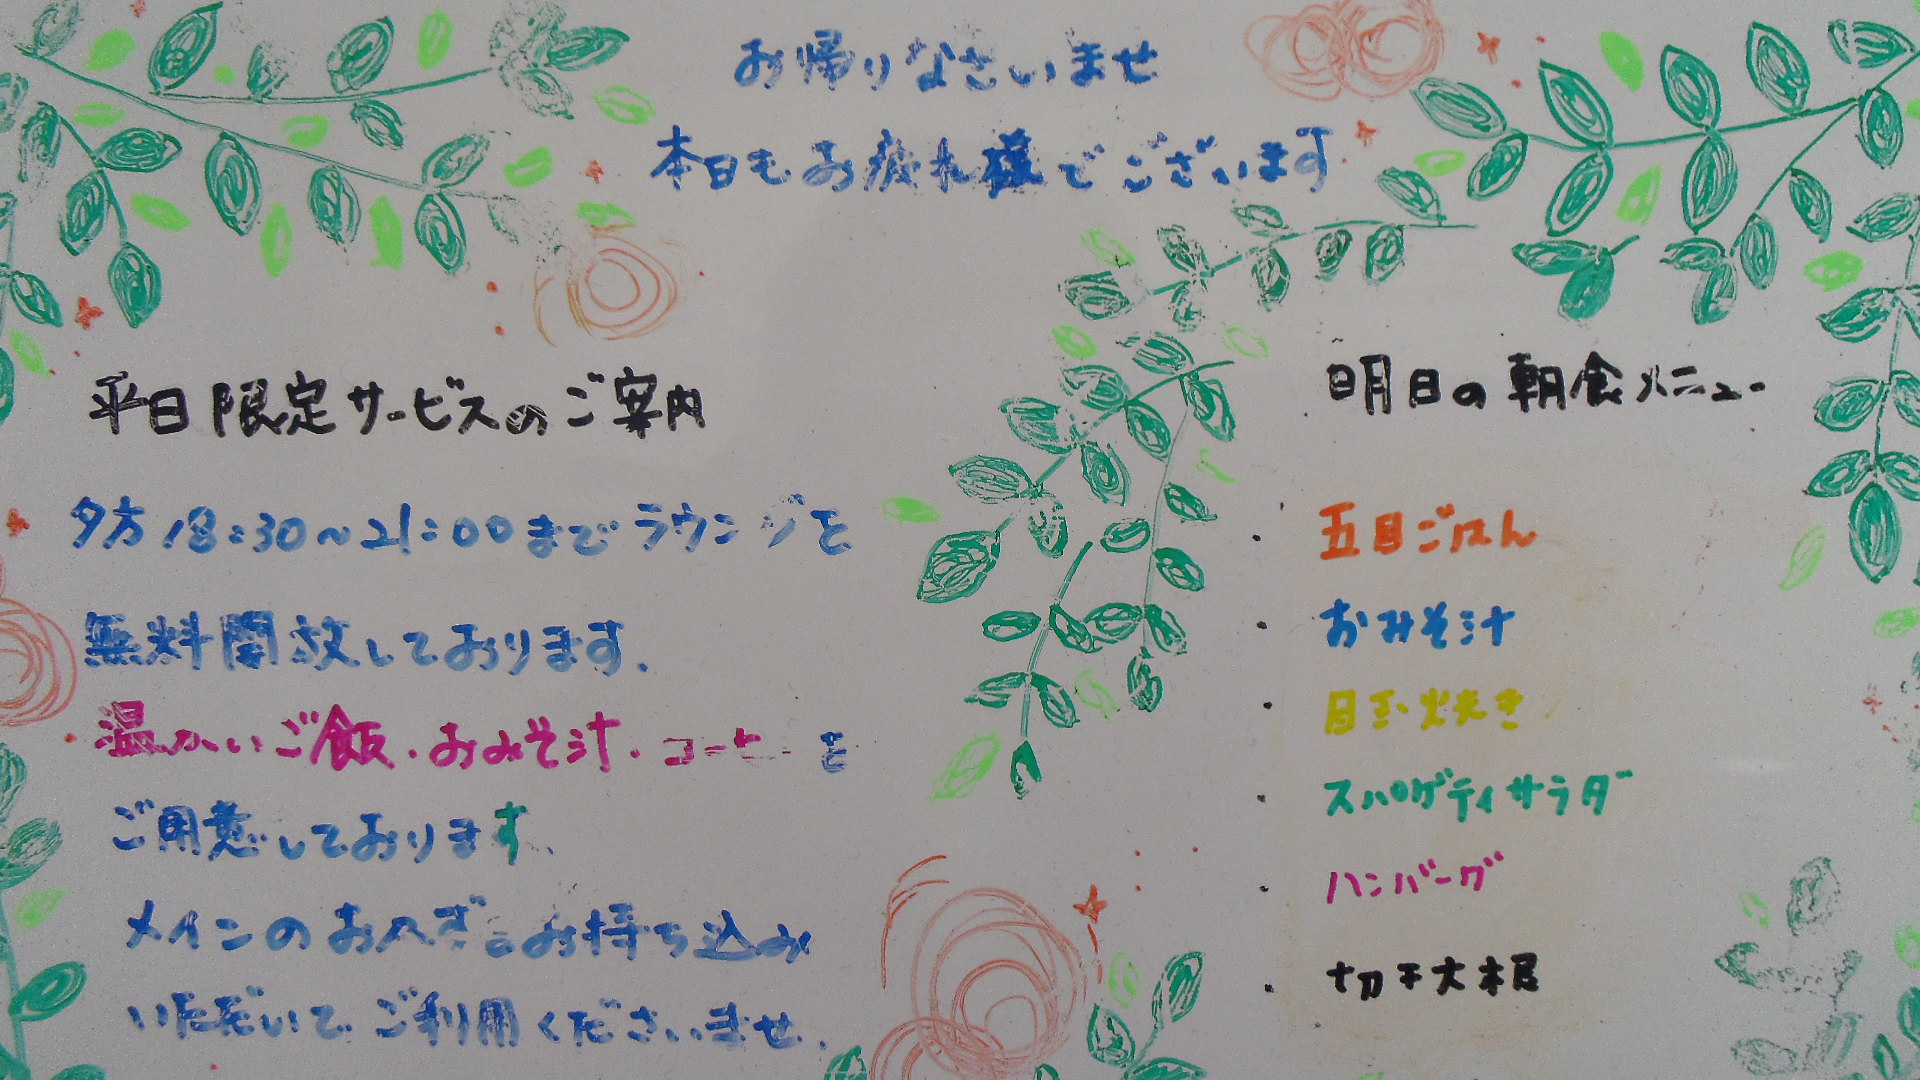 お帰りなさいませ
本日もお疲れ様でございます
平日限定サービスのご案内
夕方18:30～21:00までラウンジを
無料開放しております.
温かいご飯・おみそ汁・コーヒーを
ご用意しております.
メインのおかずをお持ち込み
いただいて ご利用くださいませ.
明日の朝食メニュー
・五目ごはん
・おみそ汁
・目玉焼き
・スパゲティサラダ
・ハンバーグ
・切干大根